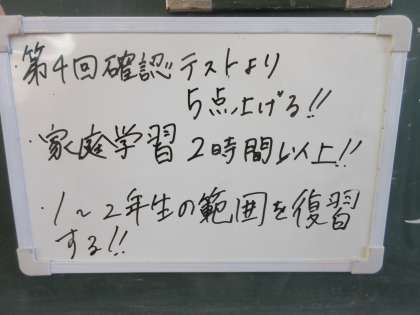 ・第4回確認テストより
5点上げる!!
・家庭学習 2時間以上!!
・1～2年生の範囲を復習
する!!